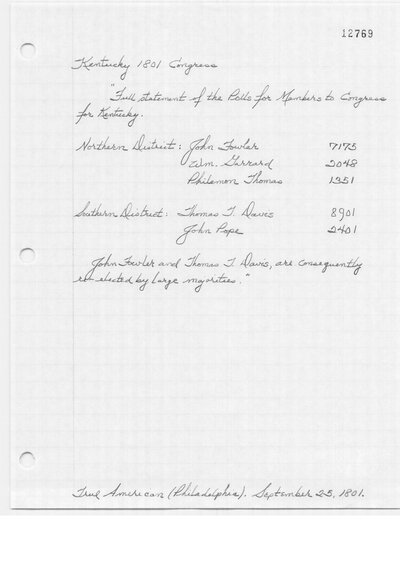 12769
Kentucky 1801 Congress
"Full statement of the Polls for Members to Congress
for Kentucky.
Northern District: John Fowler 7175
Wm. Garrard 2048
Philemon Thomas 1351
Southern District: Thomas T. Davis 8901
John Pope 2401
John Fowler and Thomas T. Davis, are consequently
re-elected by large majorities."
True American (Philadelphia). September 25, 1801.